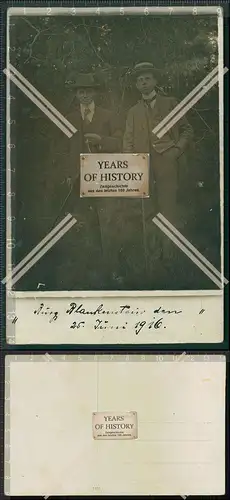 YEARS
OF HISTORY
Zeitgeschichte
aus den letzten 150 Jahren
Burg Blankenstein den
25. Juni 1916.
YEARS
OF HISTORY
Zeitgeschichte
aus den letzten 150 Jahren